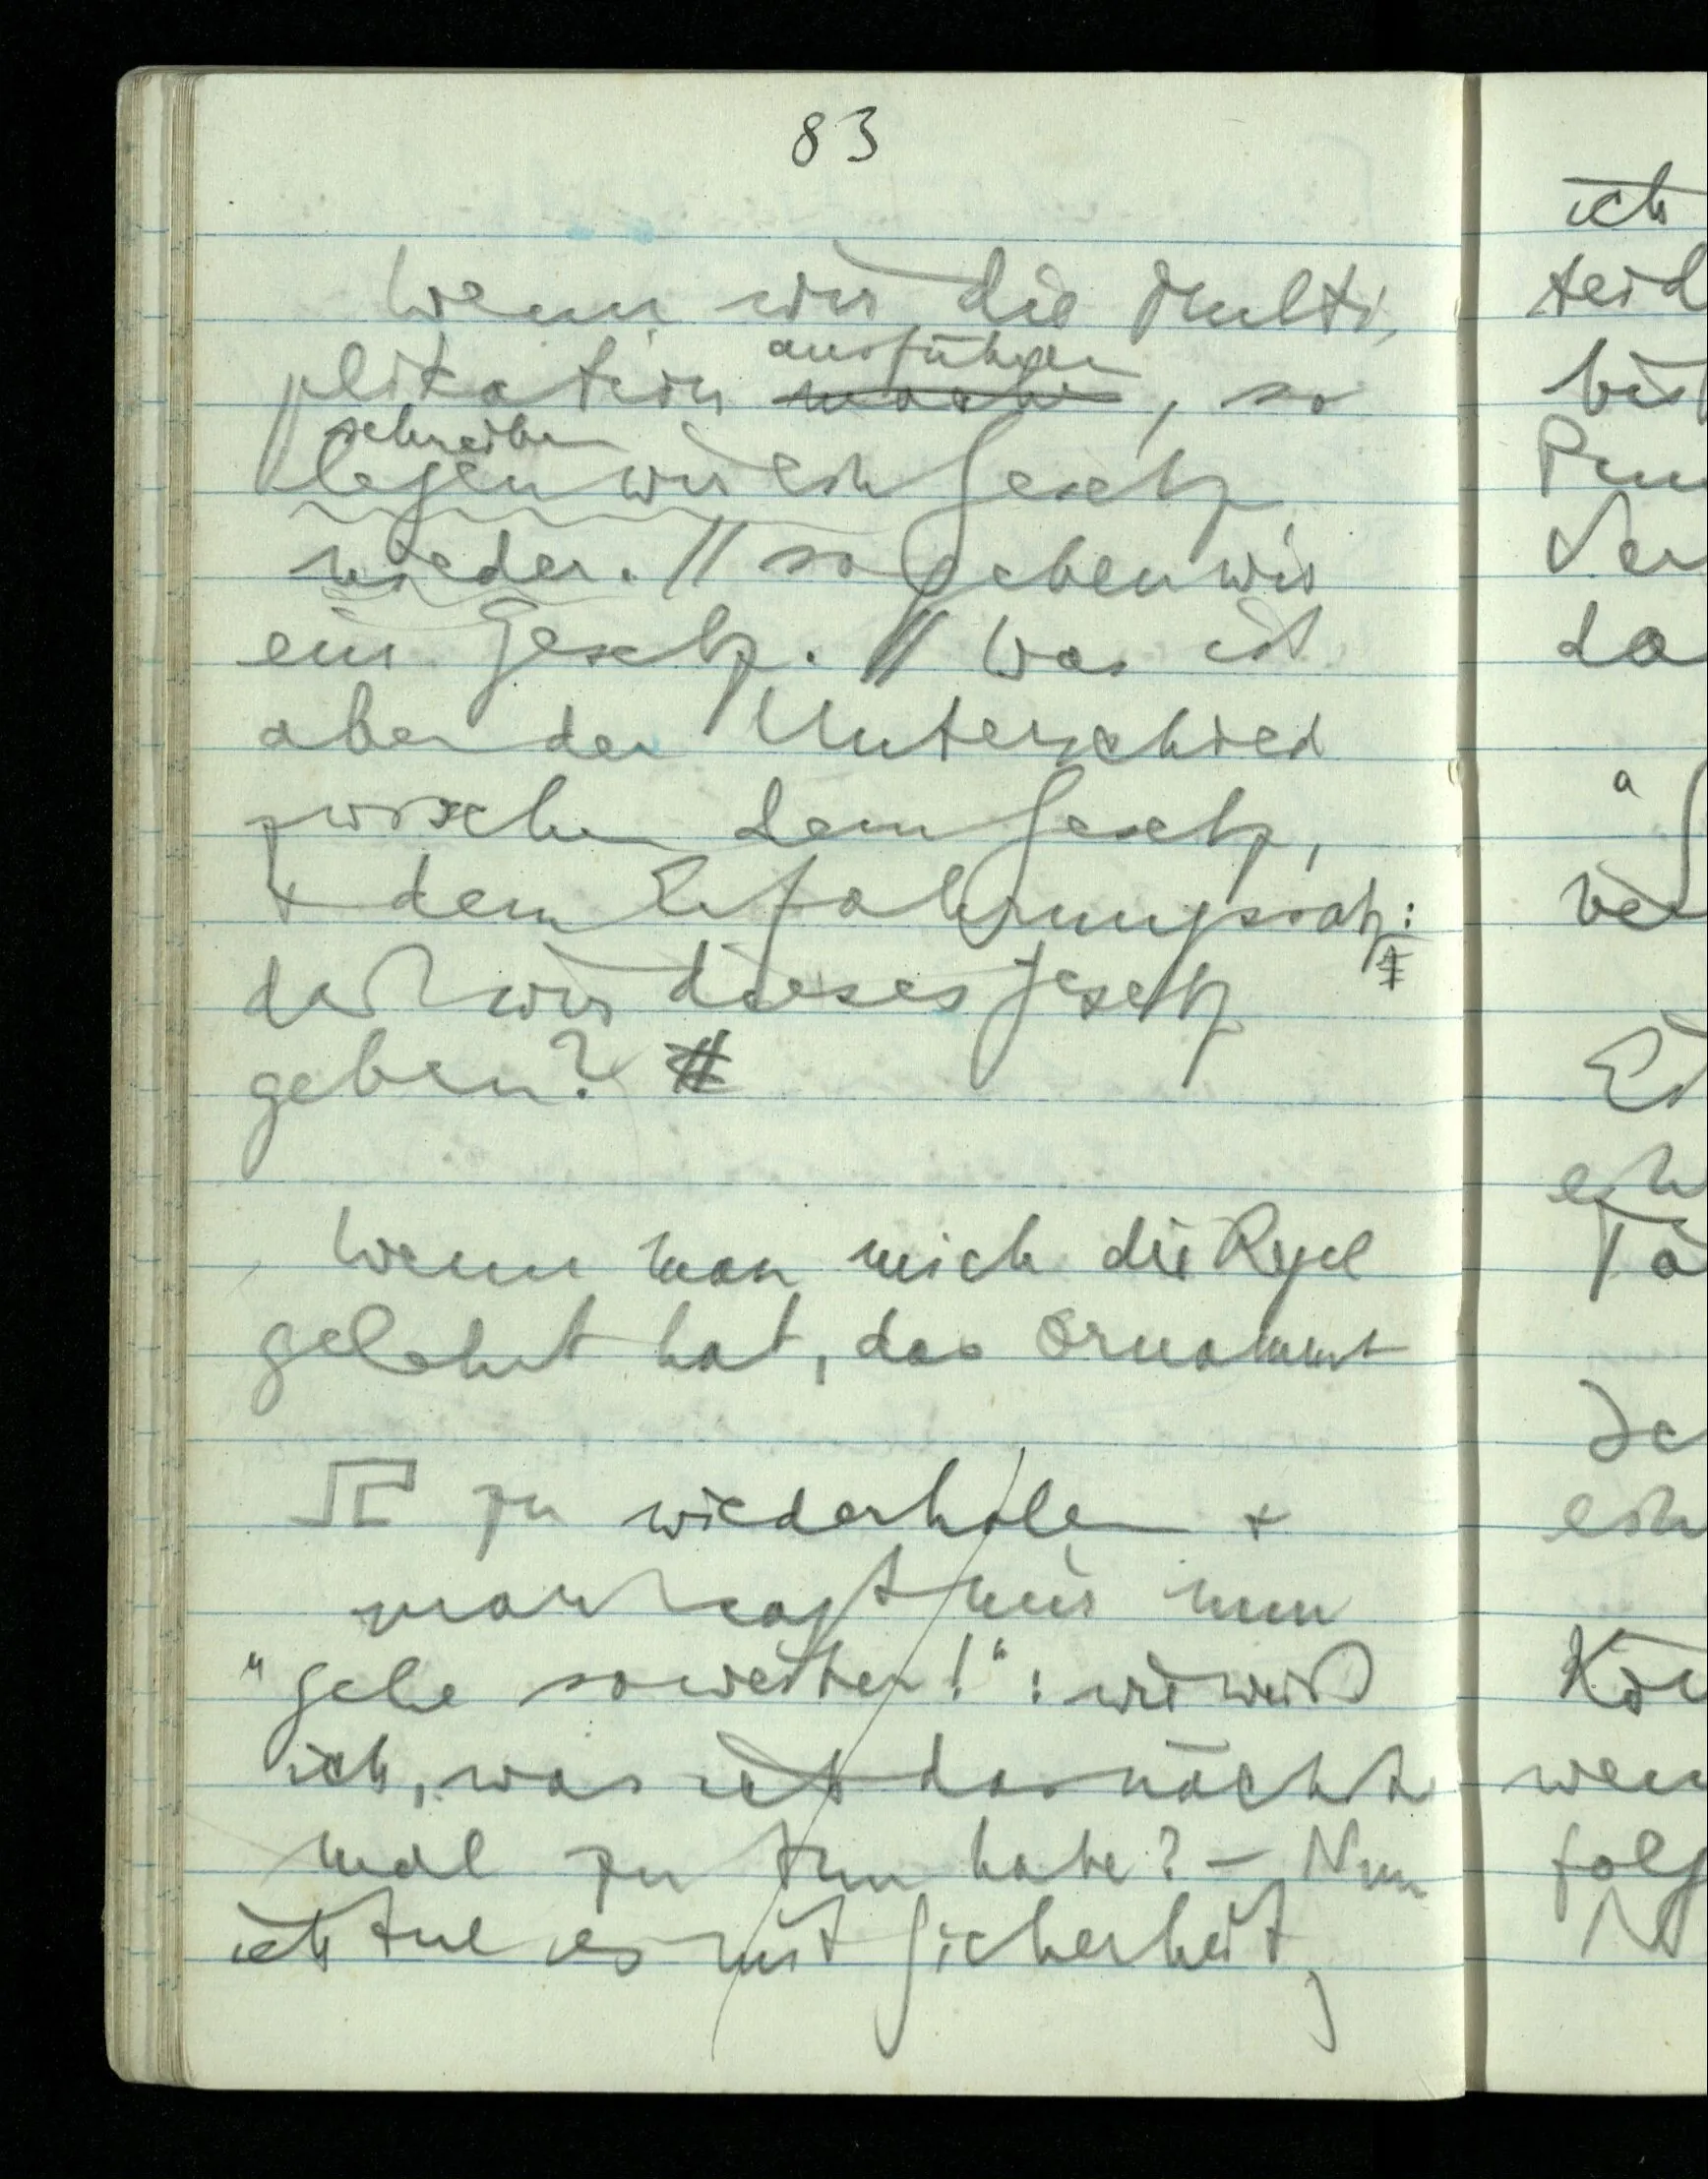 83
Wenn wir die Multi-
ausführen
plikation machen, so
schreiben
legen wir ein Gesetz
nieder. // so geben wir
ein Gesetz. // Was ist
aber der Unterschied
zwischen dem Gesetz,
+ dem Erfahrungssatz:
daß wir dieses Gesetz
geben?
Wenn man mich die Regel
gelehrt hat, das Ornament
zu wiederholen +
man sagt mir nun
"gehe so weiter!": wie weiß
ich, was ich das nächste
mal zu tun habe? – Nun
ich tue es mit Sicherheit,
ich